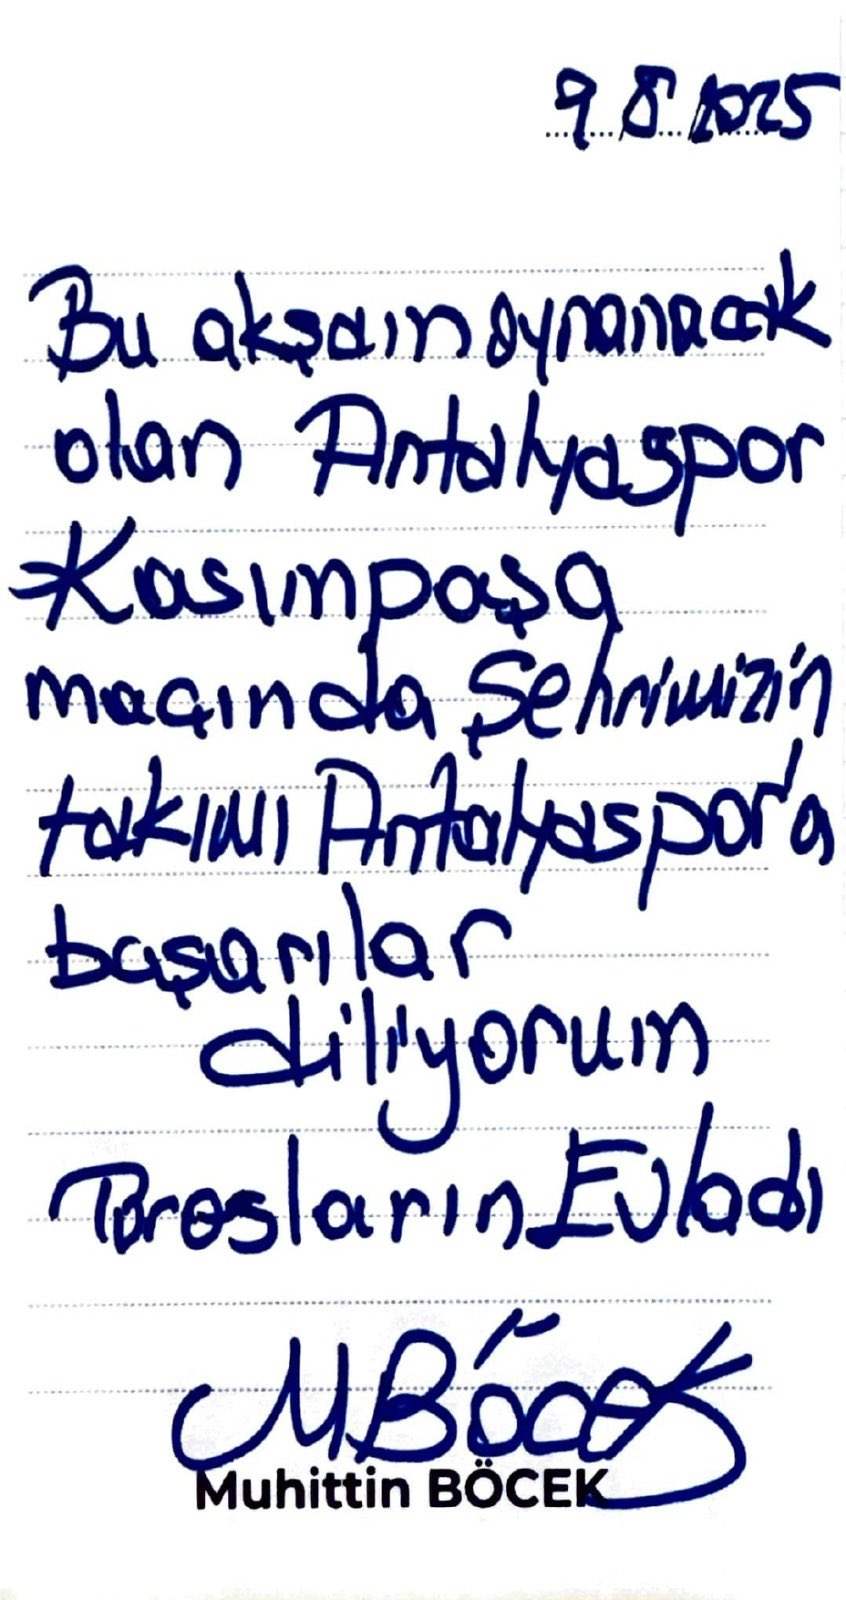 9 8 2025
Bu akşam oynanacak
olan Antalyaspor
-Kasımpaşa
maçında Şehrimizin
takımı Antalyaspor'a
başarılar
diliyorum
Torosların Evladı
MBöcek
Muhittin BÖCEK